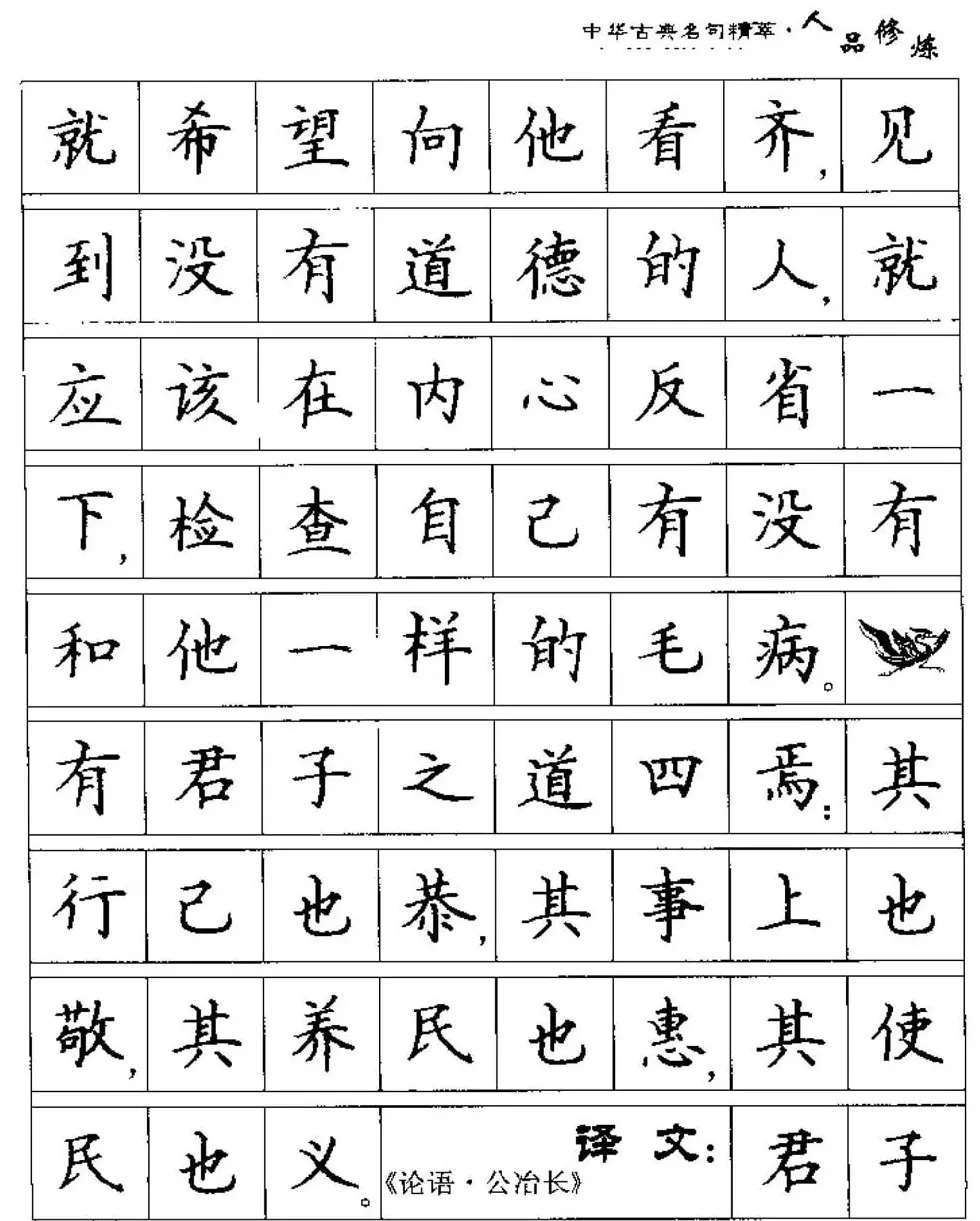 中华古典名句精萃·人品修炼
就希望向他看齐,见
到没有道德的人,就
应该在内心反省一
下,检查自己有没有
和他一样的毛病。
有君子之道四焉:其
行己也恭,其事上也
敬,其养民也惠,其使
民也义。《论语·公冶长》译文:君子